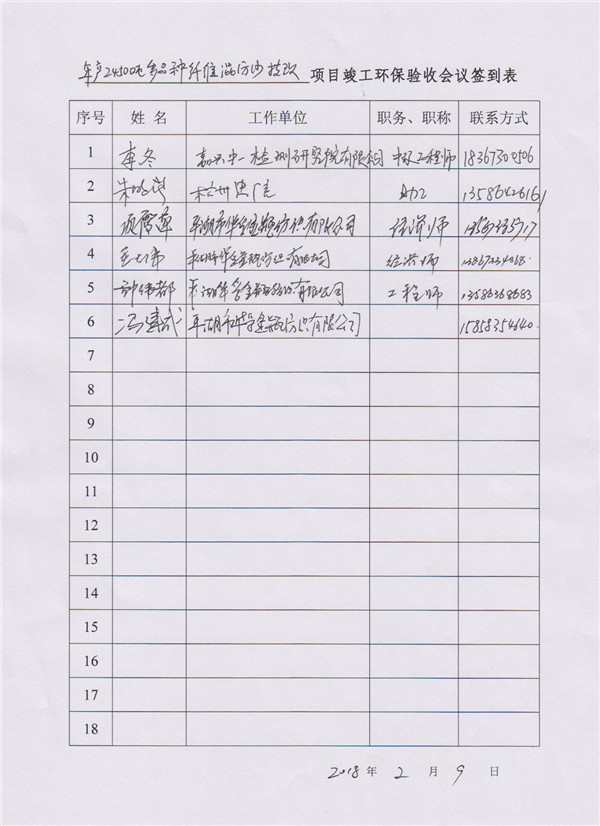 年产24500吨多品种纤维混纺纱技改 项目竣工环保验收会议签到表
序号 姓 名 工作单位 职务、职称 联系方式
1 李冬 嘉兴中一检测研究院有限公司 中级工程师 18367300506
2 朱 杭州 助工 13586426161
3 平湖市华孚金瓶纺织有限公司 经济师
4 平湖华孚金瓶纺织有限公司 经济师
5 钟伟都 平湖华孚金瓶纺织有限公司 工程师 13586368683
6 冯建 平湖市华孚金瓶纺织有限公司 15858354640
7
8
9
10
11
12
13
14
15
16
17
18
2018 年 2 月 9 日